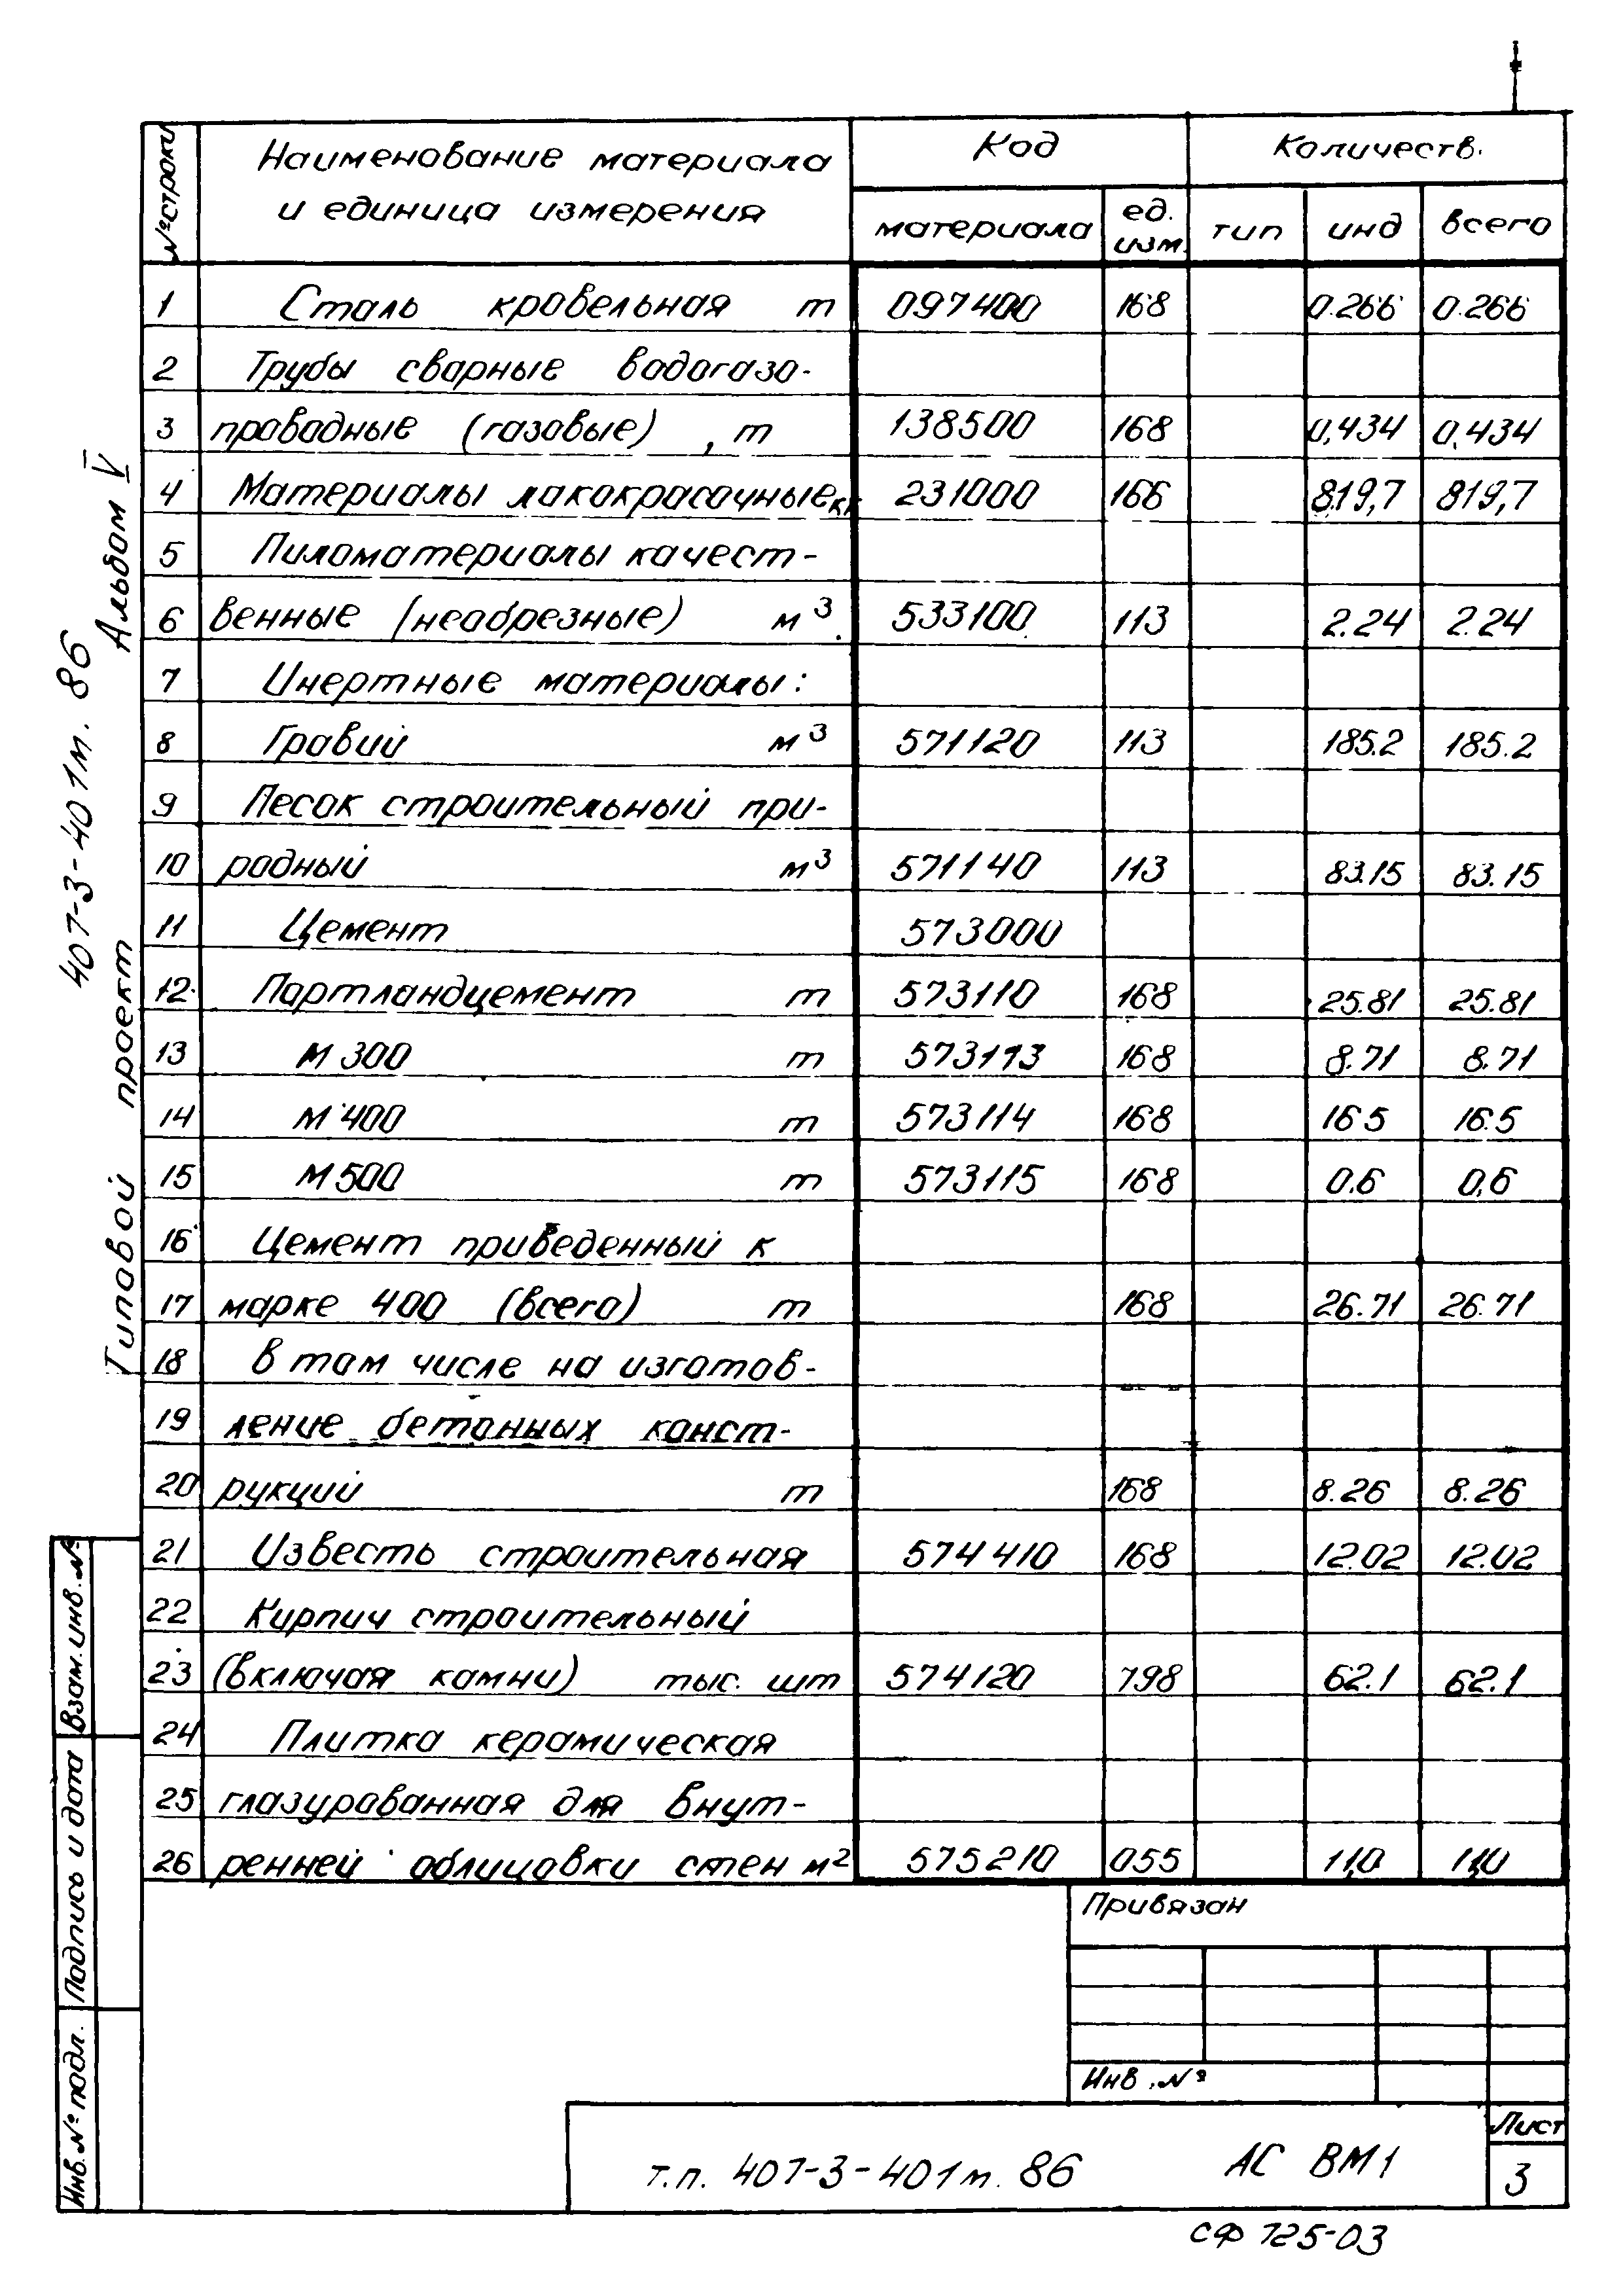 № строки | Наименование материала и единица измерения | Код | Количеств.
материала | ед. изм. | тип | инд | всего
1 Сталь кровельная т 097400 168 0.266 0.266
2 Трубы сварные водогазо-
3 проводные (газовые) , т 138500 168 0,434 0,434
4 Материалы лакокрасочные кг 231000 166 819,7 819,7
5 Пиломатериалы качест-
6 венные (необрезные) м³ 533100 113 2.24 2.24
7 Инертные материалы:
8 Гравий м³ 571120 113 185.2 185.2
9 Песок строительный при-
10 родный м³ 571140 113 83.15 83.15
11 Цемент 573000
12 Портландцемент т 573110 168 25.81 25.81
13 М 300 т 573113 168 8.71 8.71
14 М 400 т 573114 168 16 5 16.5
15 М 500 т 573115 168 0.6 0,6
16 Цемент приведенный к
17 марке 400 (всего) т 168 26.71 26.71
18 в том числе на изготов-
19 ление бетонных конст-
20 рукций т 168 8.26 8.26
21 Известь строительная 574410 168 12.02 12.02
22 Кирпич строительный
23 (включая камни) тыс. шт 574120 798 62.1 62.1
24 Плитка керамическая
25 глазурованная для внут-
26 ренней облицовки стен м² 575210 055 11,0 11,0
Типовой проект 407-3-401м. 86 Альбом V
Взам. инв. №
Подпись и дата
Инв. № подл.
Привязан
Инв. №
т.п. 407-3-401м. 86 АС ВМ1
Лист
3
СФ 725-03